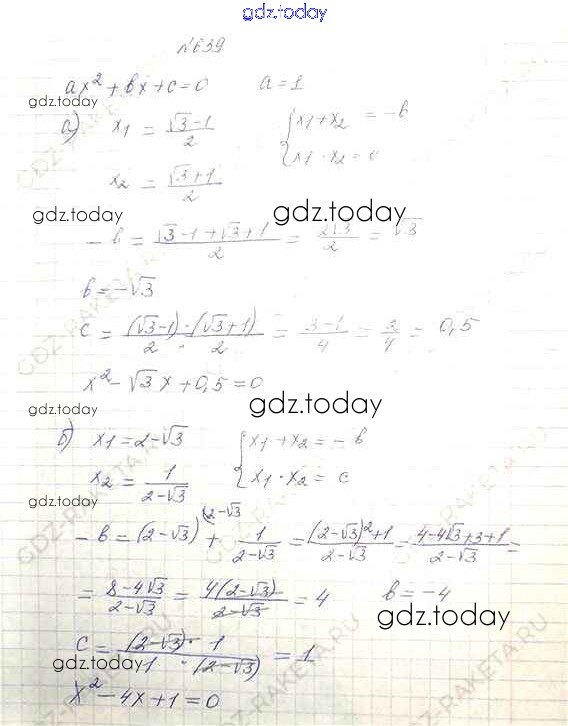 gdz.today
№639
ax² + bx + c = 0    a = 1
gdz.today
а) x₁ = (√3-1)/2    { x₁ + x₂ = -b
x₂ = (√3+1)/2    { x₁ · x₂ = c
gdz.today    gdz.today
-b = (√3-1+√3+1)/2 = 2√3/2 = √3
b = -√3
c = (√3-1)·(√3+1)/2·2 = (3-1)/4 = 2/4 = 0,5
x² - √3x + 0,5 = 0
gdz.today    gdz.today
б) x₁ = 2-√3    { x₁ + x₂ = -b
x₂ = 1/(2-√3)    { x₁ · x₂ = c
gdz.today
-b = (2-√3)^(2-√3 + 1/(2-√3) = ((2-√3)²+1)/(2-√3) = (4-4√3+3+1)/(2-√3) =
= (8-4√3)/(2-√3) = 4(2-√3)/(2-√3) = 4    b = -4
gdz.today
c = (2-√3)·1/1·(2-√3) = 1
gdz.today    gdz.today
x² - 4x + 1 = 0
GDZ-RAKETA.RU